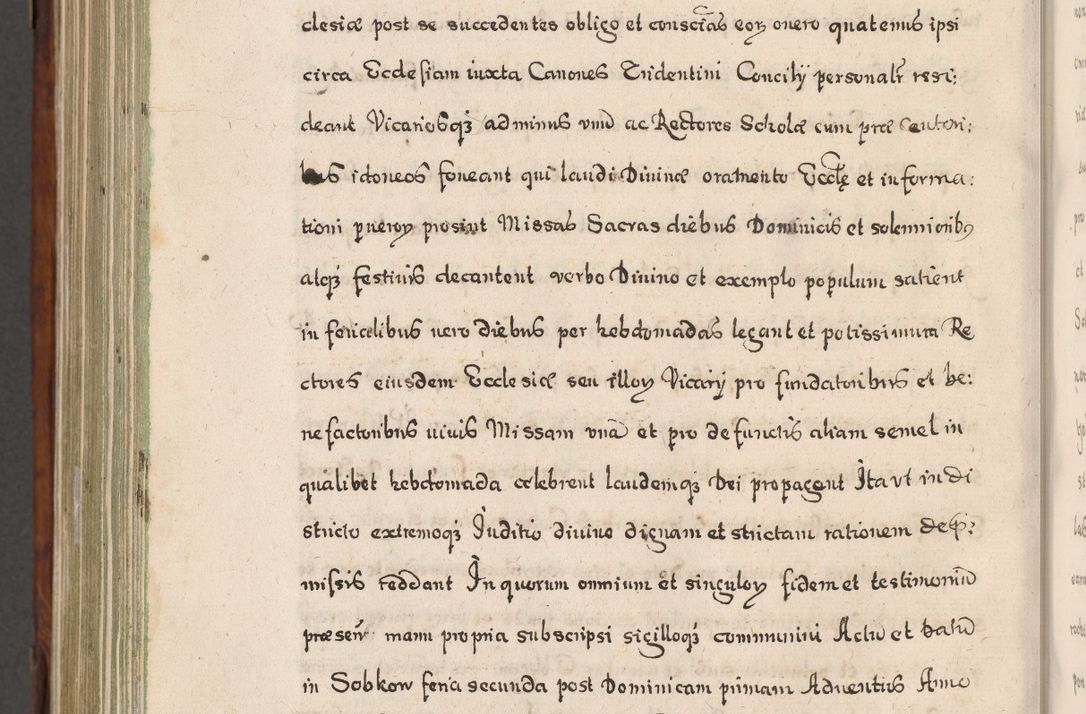 clesiæ post se succedentes obligo et conscīās eoꝝ onero quatenus ipsi
circa Ecclesiam iuxta Canones Tridentini Concilij personalr̄ resi:
deant Vicariosqꝫ ad minus vnū ac Rectores Scholæ cum præ Centori:
bus idoneos foneant qui laudi Divinæ oramento Ecclę et informa:
tioni pueroꝝ prosint Missas Sacras diebus Dominicis et solennioribꝫ
atqꝫ festiuis decantent verbo Diuino et exemplo populum satient
in ferialibus uero diebus per hebdomadas legant et potissimum Re
ctores eiusdem Ecclesiæ seu illoꝝ Vicarij pro fundatoribus et be:
nefactoribus uiuis Missam vnā et pro defunctis aliam semel in
qualibet hebdomada celebrent laudemqꝫ Dei propagent Ita vt in di
stricto extremoqꝫ Iuditio diuino dignam et strictam rationem de p:
missis reddant In quorum omnium et singuloꝝ fidem et testimoniū
præsen̄ manu propria subscripsi sigilloqꝫ communiui Actu et datū
in Sobkow feria secunda post Dominicam primam Aduentus Anno